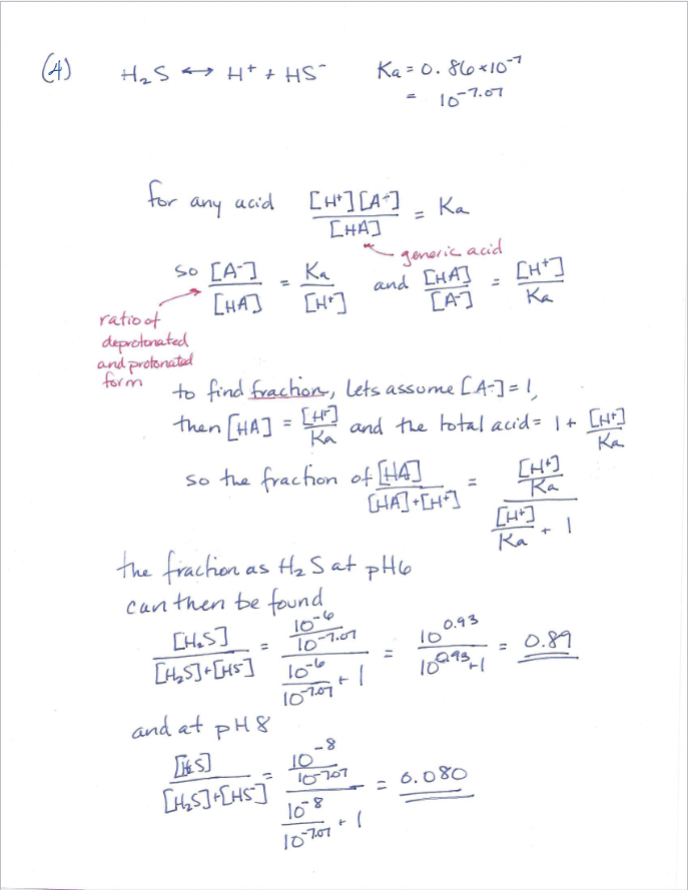 (4) H₂S ↔ H⁺ + HS⁻ Ka = 0.86×10⁻⁷
= 10⁻⁷·⁰⁷
for any acid [H⁺][A⁻]/[HA] = Ka
generic acid
so [A⁻]/[HA] = Ka/[H⁺] and [HA]/[A⁻] = [H⁺]/Ka
ratio of
deprotonated
and protonated
form
to find fraction, lets assume [A⁻] = 1,
then [HA] = [H⁺]/Ka and the total acid = 1 + [H⁺]/Ka
so the fraction of [HA]/([HA]+[H⁺]) = ([H⁺]/Ka)/([H⁺]/Ka + 1)
the fraction as H₂S at pH6
can then be found
[H₂S]/([H₂S]+[HS⁻]) = (10⁻⁶/10⁻⁷·⁰⁷)/(10⁻⁶/10⁻⁷·⁰⁷ + 1) = 10⁰·⁹³/(10⁰·⁹³+1) = 0.89
and at pH 8
[H₂S]/([H₂S]+[HS⁻]) = (10⁻⁸/10⁻⁷·⁰⁷)/(10⁻⁸/10⁻⁷·⁰⁷ + 1) = 0.080